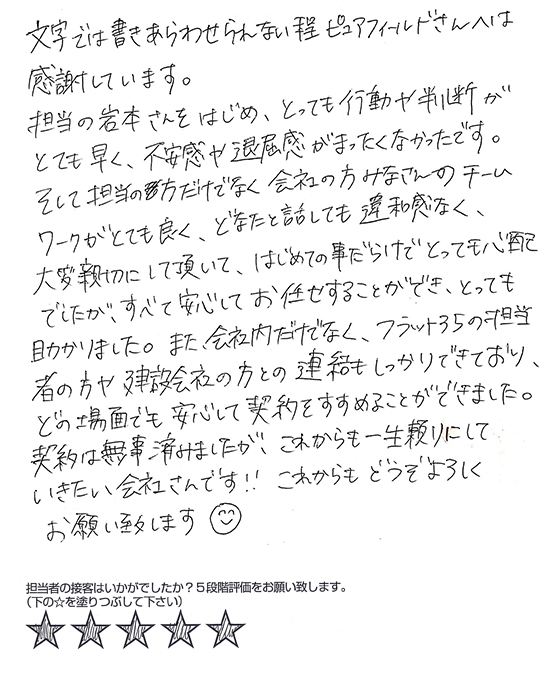 文字では書きあらわせられない程 ピュアフィールドさんへは
感謝しています。
担当の岩本さんをはじめ、とっても行動や判断が
とても早く、不安感や退屈感がまったくなかったです。
そして担当の方だけでなく会社の方みなさんのチーム
ワークがとても良く、どなたと話しても違和感なく、
大変親切にして頂いて、はじめての事だらけでとっても心配
でしたが、すべて安心してお任せすることができ、とっても
助かりました。また、会社内だけでなく、フラット35の担当
者の方や建設会社の方との連絡もしっかりできており、
どの場面でも安心して契約をすすめることができました。
契約は無事済みましたが、これからも一生頼りにして
いきたい会社さんです!! これからもどうぞよろしく
お願い致します
担当者の接客はいかがでしたか?5段階評価をお願い致します。
(下の☆を塗りつぶして下さい)